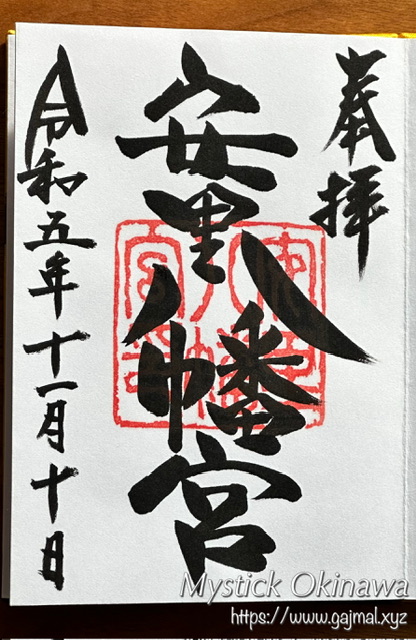 奉拝
安里八幡宮
令和五年十一月十日
Mystick Okinawa
https://www.gajmal.xyz